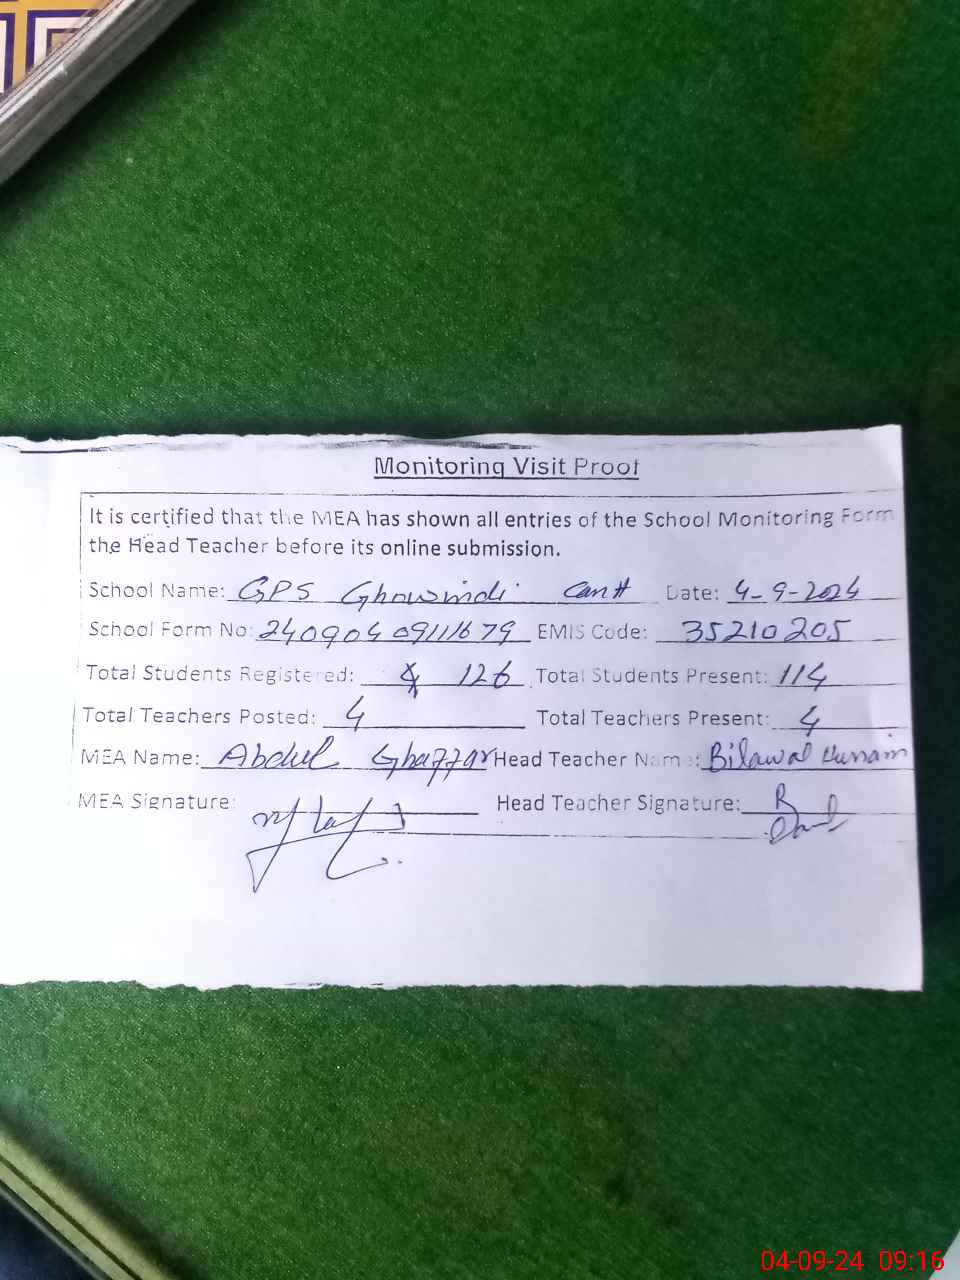 Monitoring Visit Proof
It is certified that the MEA has shown all entries of the School Monitoring Form
the Head Teacher before its online submission.
School Name: GPS Ghowindi Cantt Date: 4-9-2024
School Form No: 24090409111679 EMIS Code: 35210205
Total Students Registered: 126 Total Students Present: 114
Total Teachers Posted: 4 Total Teachers Present: 4
MEA Name: Abdul Ghaffar Head Teacher Name: Bilawal Hussain
MEA Signature: Head Teacher Signature:
04-09-24 09:16